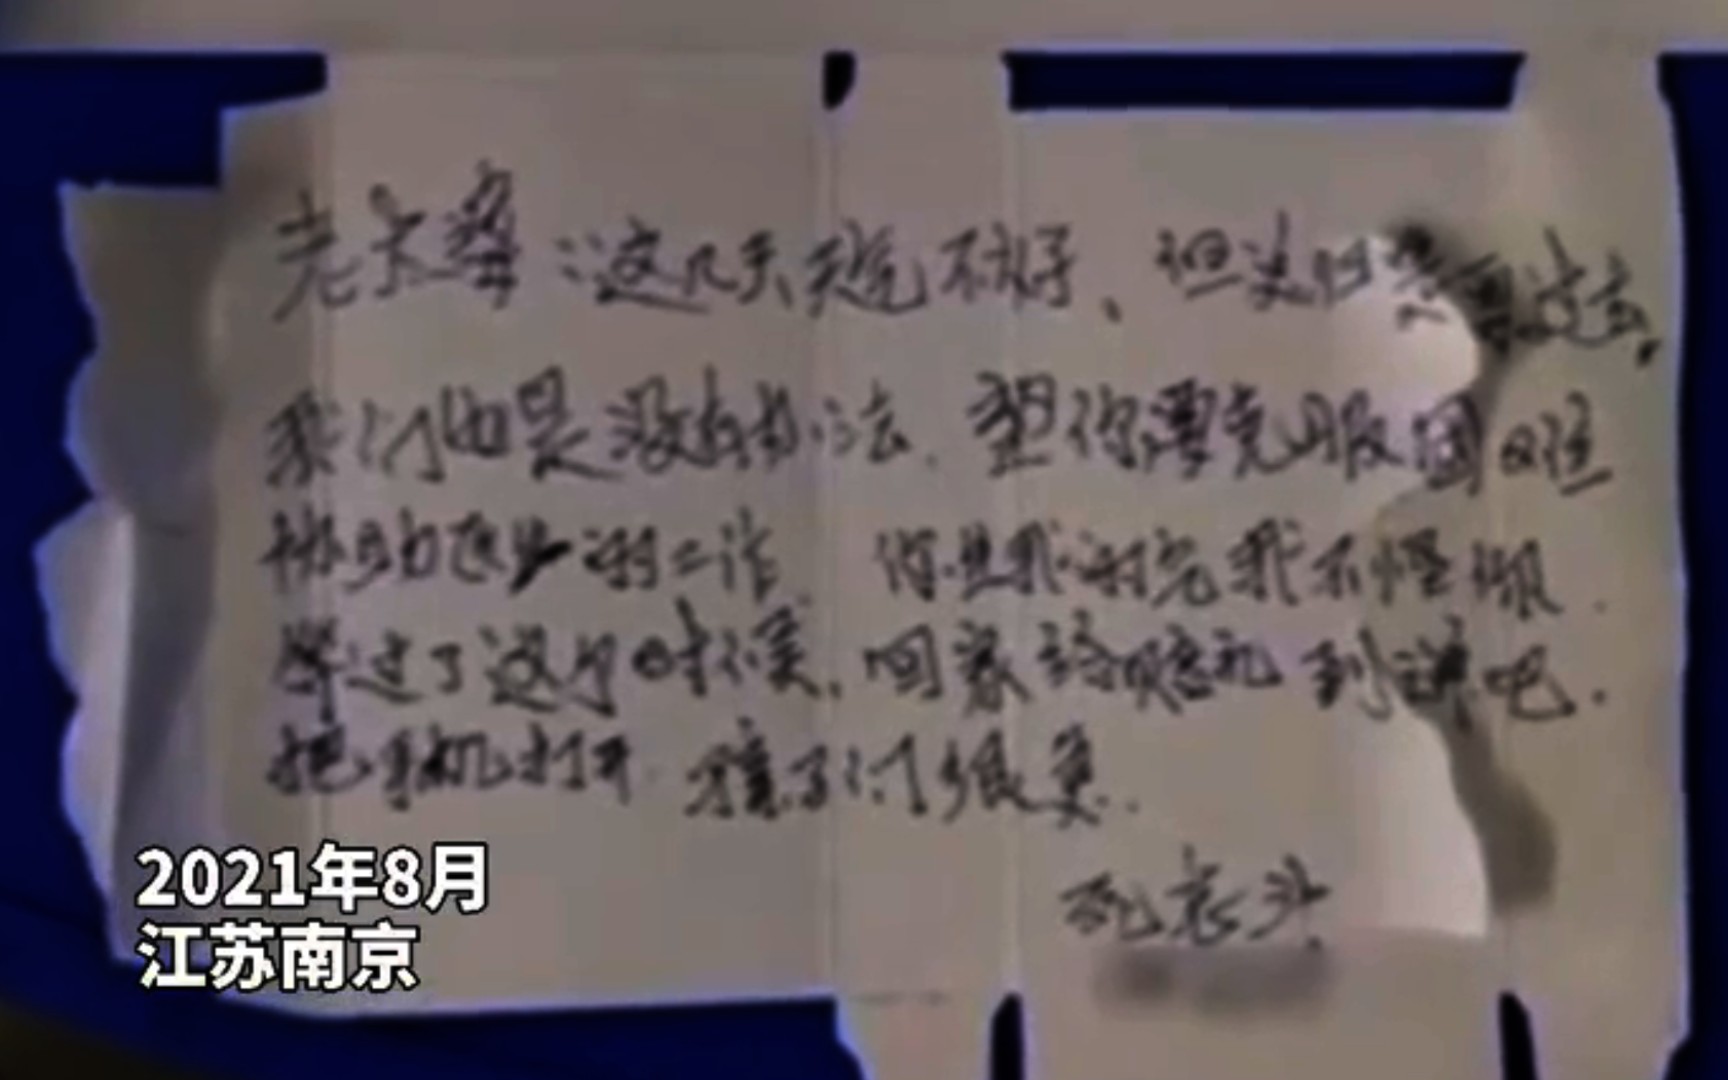 老太婆：这几天是不好、但是过去，
我们也是没有办法、望你要克服困难
协助医护的工作. 你生我的气我不怪你.
等过了这个时候，回家给赔礼到歉吧.
把手机打开 孩子们很急.
死老头
2021年8月
江苏南京